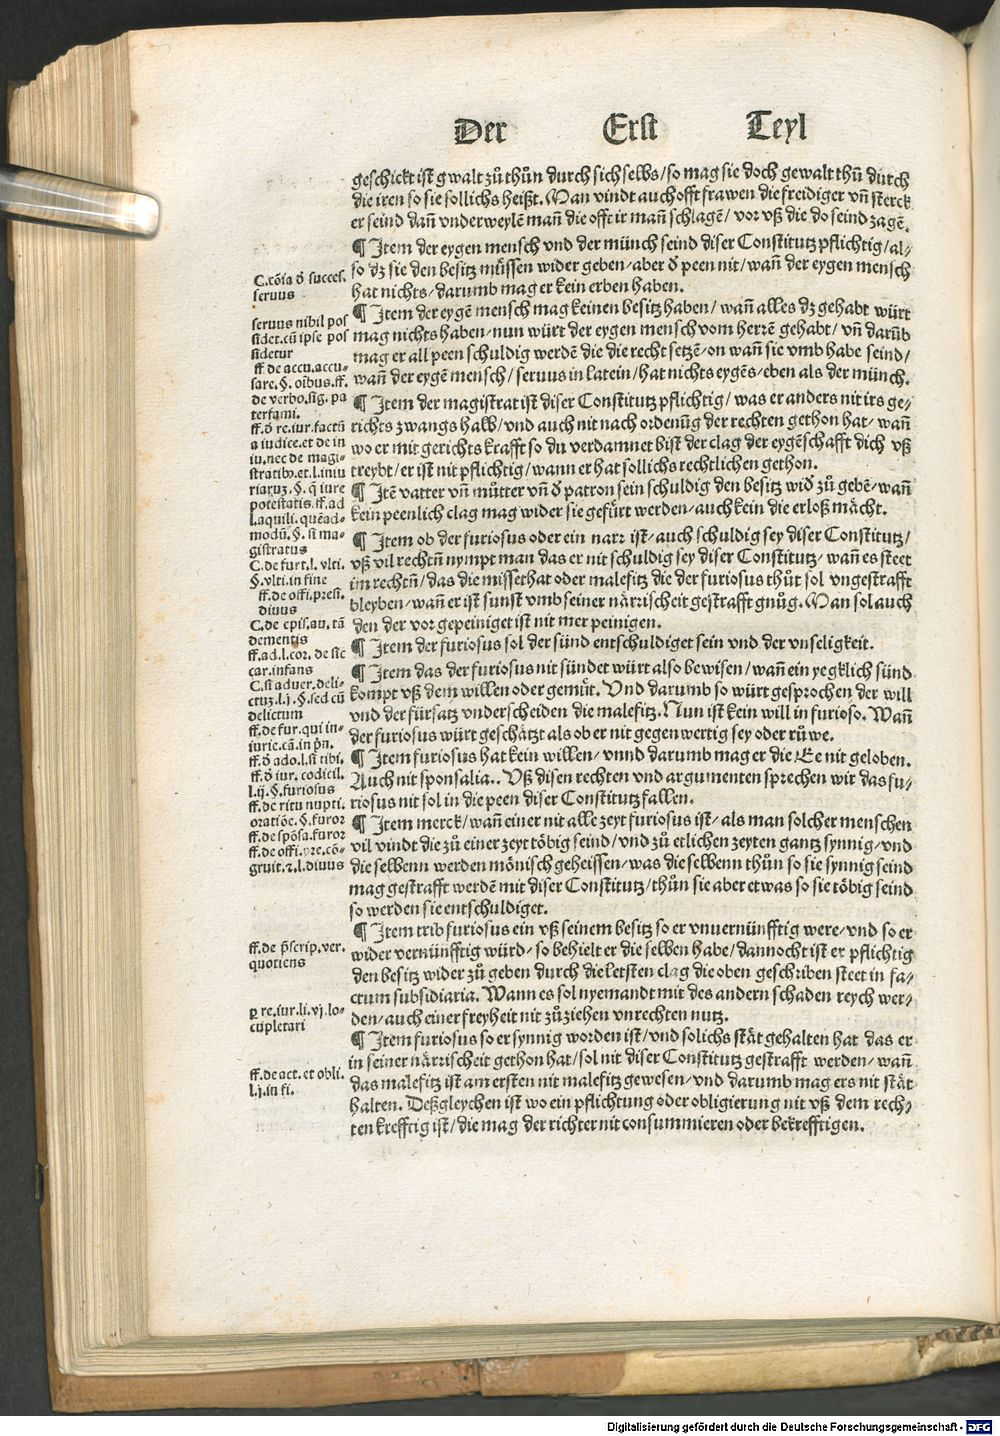 Der Erst Teyl
geschickt ist gwalt zů thůn durch sich selbs/so mag sie doch gewalt thů durch
die iren so sie sollichs heißt. Man vindt auch offt frawen die freidiger vñ sterck
er seind dañ vnderweylē mañ die offt ir mañ schlagē/ vor vß die do seind zagē.
¶ Item der eygen mensch vnd der münch seind diser Constitutz pflichtig/al⸗
so dz sie den besitz müssen wider geben/aber d̄ peen nit/wañ der eygen mensch
hat nichts/darumb mag er kein erben haben.
¶ Item der eygē mensch mag keinen besitz haben/ wañ alles dz gehabt würt
mag nichts haben/nun würt der eygen mensch vom herrē gehabt/ vñ darūb
mag er all peen schuldig werdē die die recht setzē/on wañ sie vmb habe seind/
wañ der eygē mensch/seruus in latein/hat nichts eygēs/eben als der münch.
¶ Item der magistrat ist diser Constitutz pflichtig/was er anders nit irs ge⸗
richts zwangs halb/vnd auch nit nach ordenūg der rechten gethon hat/ wañ
wo er mit gerichts krafft so du verdamnet bist der clag der eygēschafft dich vß
treybt/er ist nit pflichtig/wann er hat sollichs rechtlichen gethon.
¶ Itē vatter vñ můtter vñ d̄ patron sein schuldig den besitz wid̄ zů gebē/wañ
kein peenlich clag mag wider sie gefürt werden/auch kein die erloß mächt.
¶ Item ob der furiosus oder ein narr ist/auch schuldig sey diser Constitutz/
vß vil rechtñ nympt man das er nit schuldig sey diser Constitutz/ wañ es steet
im rechtñ/das die missethat oder malefitz die der furiosus thůt sol vngestrafft
bleyben/wañ er ist sunst vmb seiner närrischeit gestrafft gnůg. Man sol auch
den der vor gepeiniget ist nit mer peinigen.
¶ Item der furiosus sol der sünd entschuldiget sein vnd der vnseligkeit.
¶ Item das der furiosus nit sündet würt also bewisen/wañ ein yegklich sünd
kompt vß dem willen oder gemüt. Vnd darumb so würt gesprochen der will
vnd der fürsatz vnderscheiden die malefitz. Nun ist kein will in furioso. Wañ
der furiosus würt geschätzt als ob er nit gegenwertig sey oder růwe.
¶ Item furiosus hat kein willen/vnnd darumb mag er die Ee nit geloben.
Auch nit sponsalia.. Vß disen rechten vnd argumenten sprechen wir das fu⸗
riosus nit sol in die peen diser Constitutz fallen.
¶ Item merck/wañ einer nit alle zeyt furiosus ist/als man solcher menschen
vil vindt die zů einer zeyt töbig seind/vnd zů etlichen zeyten gantz synnig/vnd
die selbenn werden mönisch geheissen/was die selbenn thůn so sie synnig seind
mag gestrafft werdē mit diser Constitutz/thůn sie aber etwas so sie töbig seind
so werden sie entschuldiget.
¶ Item trib furiosus ein vß seinem besitz so er vnuernünfftig were/vnd so er
wider vernünfftig würd/so behielt er die selben habe/dannocht ist er pflichtig
den besitz wider zů geben durch die letsten clag die oben geschriben steet in fa⸗
ctum subsidiaria. Wann es sol nyemandt mit des andern schaden reych wer⸗
den/auch einer freyheit nit zů ziehen vnrechten nutz.
¶ Item furiosus so er synnig worden ist/vnd solichs stät gehalten hat das er
in seiner närrischeit gethon hat/sol nit diser Constitutz gestrafft werden/wañ
das malefitz ist am ersten nit malefitz gewesen/vnd darumb mag ers nit stät
halten. Deßgleychen ist wo ein pflichtung oder obligierung nit vß dem rech⸗
ten krefftig ist/die mag der richter nit consummieren oder bekrefftigen.
C.cōia d̄ succes.
seruus
seruus nihil pos
sidet.cū ipse pos
sidetur
ff de accu.accu⸗
sare.§.oībus.ff.
de verbo.sig.pa
terfami.
ff.d̄ re.iur.factū
a iudice.et de in
iu.nec de magi⸗
stratibꝰ.et.l.iniu
riaruꝫ.§.q̄ iure
potestatis.ff.ad
l.aquili.quēad⸗
modū.§.si ma⸗
gistratus
C.de furt.l.vlti.
§.vlti.in fine
ff.de offi.presi.
diuus
C.de epis.au.tā
dementis
ff.ad.l.cor.de sic
car.infans
C.si aduer.deli⸗
ctuꝫ.l.j.§.sed cū
delictum
ff.de fur.qui in⸗
iurie.cā.in pn̄.
ff.d̄ ado.l.si tibi.
ff.d̄ iur.codicil.
l.ij.§.furiosus
ff.de ritu nupti.
oratiōe.§.furor
ff.de spōsa.furor
ff.de offi.pre.cō⸗
gruit.⁊.l.diuus
ff.de p̄scrip.ver.
quotiens
ꝑ re.iur.li.vj.lo⸗
cupletari
ff.de act.et obli.
l.j.in fi.
Digitalisierung gefördert durch die Deutsche Forschungsgemeinschaft - DFG